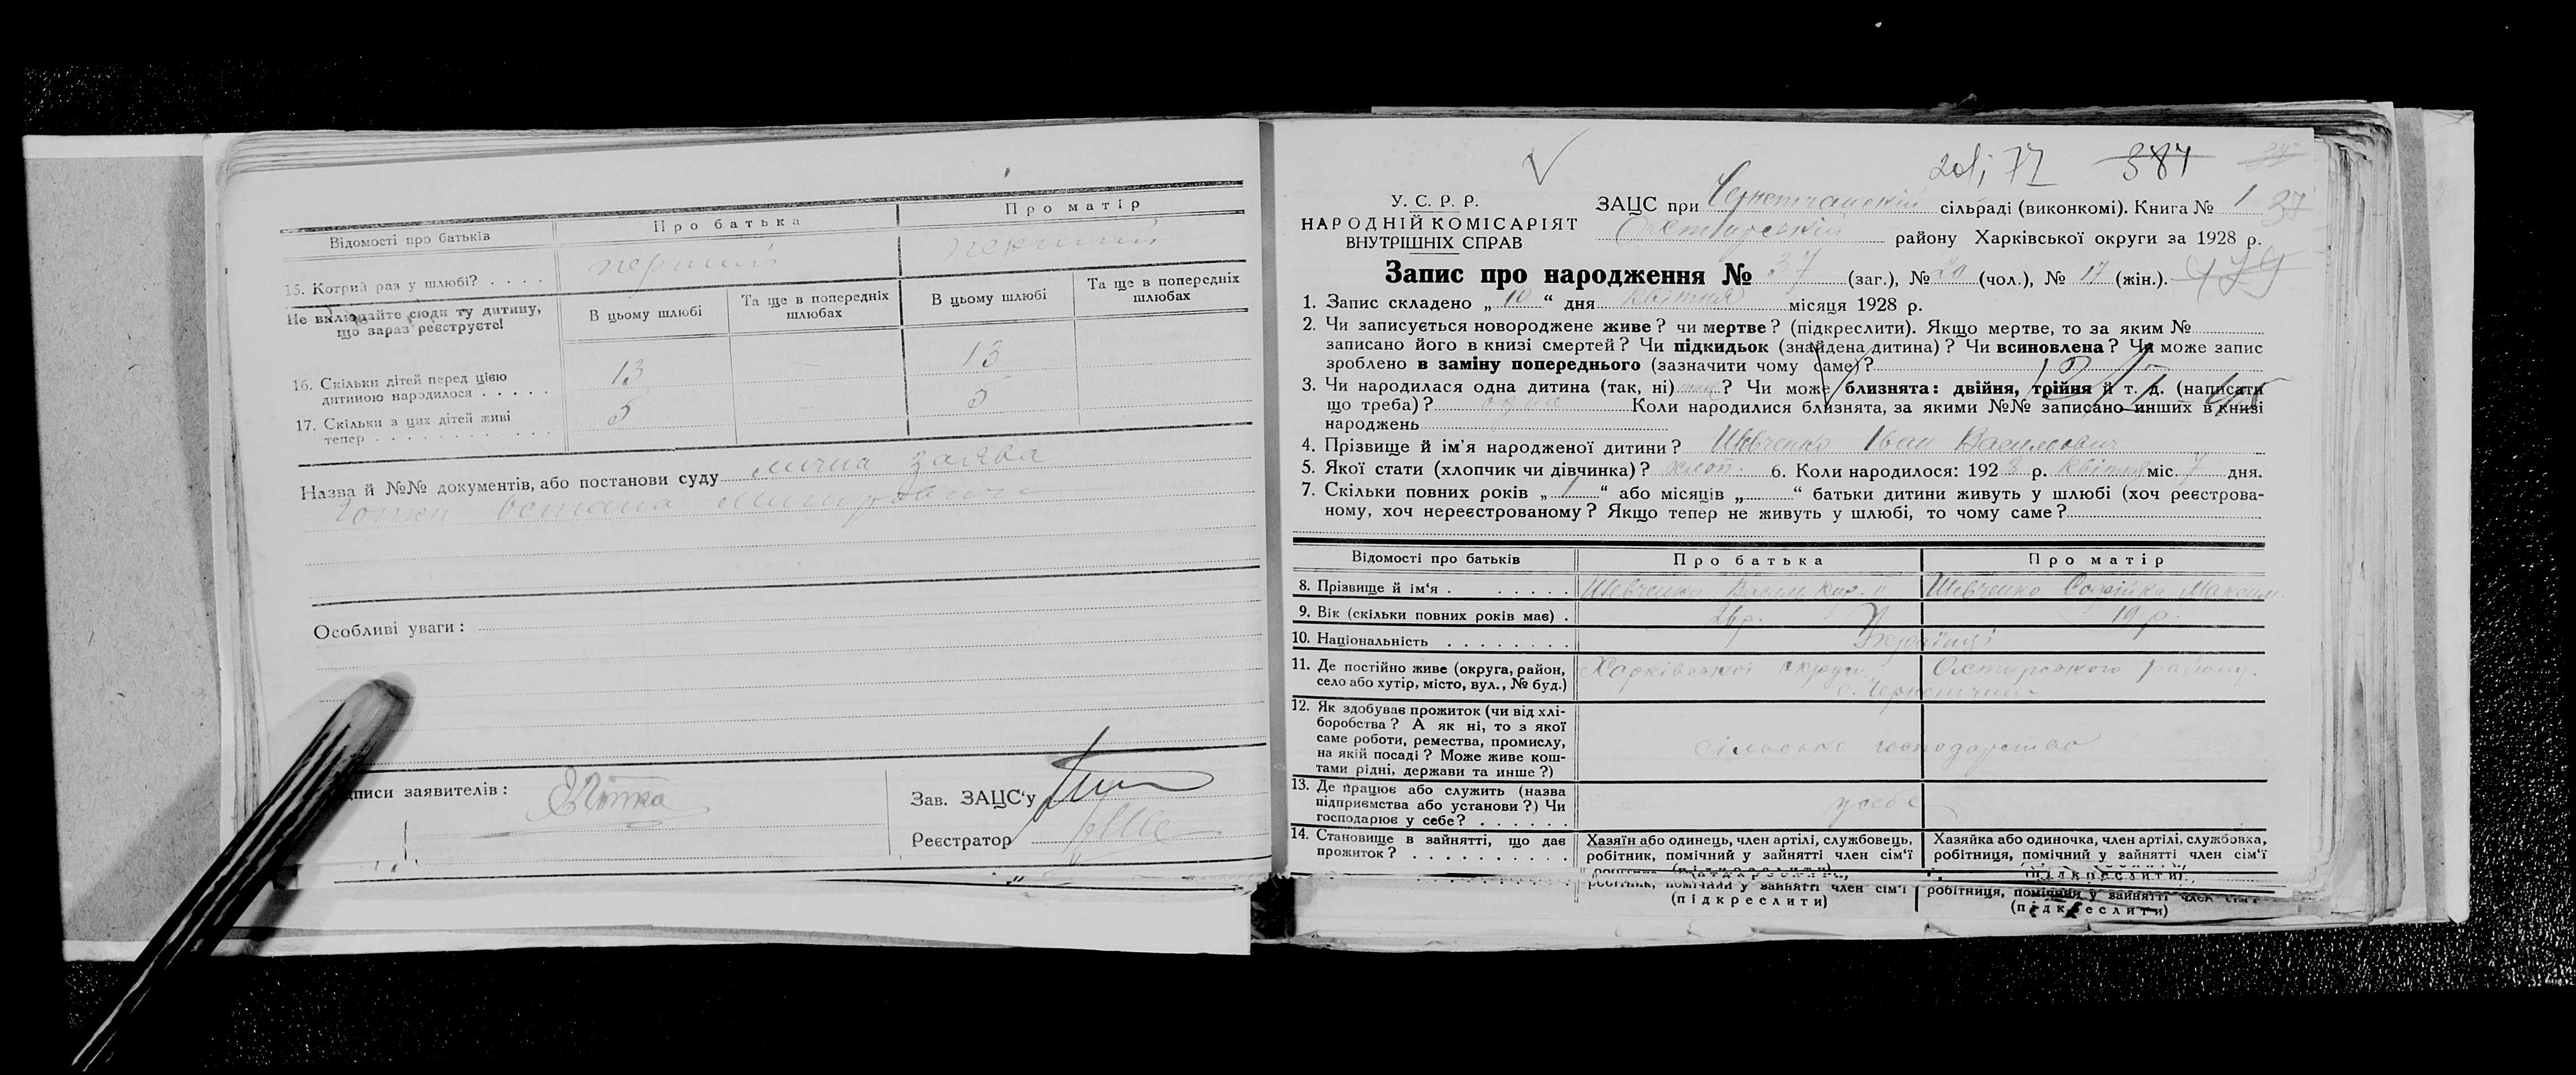 Відомості про батьків
Про батька
Про матір
15. Котрий раз у шлюбі? . . . .
перший
перший
Не включайте сюди ту дитину, що зараз реєструєте!
В цьому шлюбі
Та ще в попередніх шлюбах
В цьому шлюбі
Та ще в попередніх шлюбах
16. Скільки дітей перед цією дитиною народилося . . . . .
13
—
13
17. Скільки з цих дітей живі тепер . . . . . . . . . . . .
5
—
5
Назва й №№ документів, або постанови суду лична заява
Особливі уваги:
дписи заявителів:
Зав. ЗАЦС'у
Реєстратор
387
У. С. Р. Р.
НАРОДНІЙ КОМІСАРІЯТ
ВНУТРІШНІХ СПРАВ
ЗАЦС при Чернетчанській сільраді (виконкомі). Книга № 1
37
Охтирський району Харківської округи за 1928 р.
Запис про народження № 37 (заг.), № 20 (чол.), № 17 (жін.).
479
1. Запис складено „ 10 “ дня квітня місяця 1928 р.
2. Чи записується новороджене живе? чи мертве? (підкреслити). Якщо мертве, то за яким №
записано його в книзі смертей? Чи підкидьок (знайдена дитина)? Чи всиновлена? Чи може запис
зроблено в заміну попереднього (зазначити чому саме)?
3. Чи народилася одна дитина (так, ні) так? Чи може близнята: двійня, трійня й т. д. (написати
що треба)? одна Коли народилися близнята, за якими №№ записано инших в книзі
народжень
4. Прізвище й ім'я народженої дитини? Шевченко Іван Васильович
5. Якої стати (хлопчик чи дівчинка)? хлоп. 6. Коли народилося: 1928 р. квітня міс. 7 дня.
7. Скільки повних років „ 1 “ або місяців „ “ батьки дитини живуть у шлюбі (хоч реєстрова-
ному, хоч нереєстрованому? Якщо тепер не живуть у шлюбі, то чому саме?
Відомості про батьків
Про батька
Про матір
8. Прізвище й ім'я . . . . . . .
Шевченко Василь
Шевченко Софійка Максим.
9. Вік (скільки повних років має) .
26 р.
19 р.
10. Національність . . . . . . . .
Українці
11. Де постійно живе (округа, район, село або хутір, місто, вул., № буд.)
Харківської округи Охтирського району.
с. Чернетчина
12. Як здобуває прожиток (чи від хлі-
боробства? А як ні, то з якої
саме роботи, ремества, промислу,
на якій посаді? Може живе кош-
тами рідні, держави та инше?)
сільське господарство
13. Де працює або служить (назва
підприємства або установи?) Чи
господарює у себе? . . . . . .
у себе
14. Становище в зайнятті, що дає
прожиток? . . . . . . . . . .
Хазяїн або одинець, член артілі, службовець,
робітник, помічний у зайнятті член сім'ї
Хазяйка або одиночка, член артілі, службовка,
робітниця, помічний у зайнятті член сім'ї
робітник, помічний у зайнятті член сім'ї
(підкреслити)
робітниця, помічний у зайнятті член сім'ї
(підкреслити)